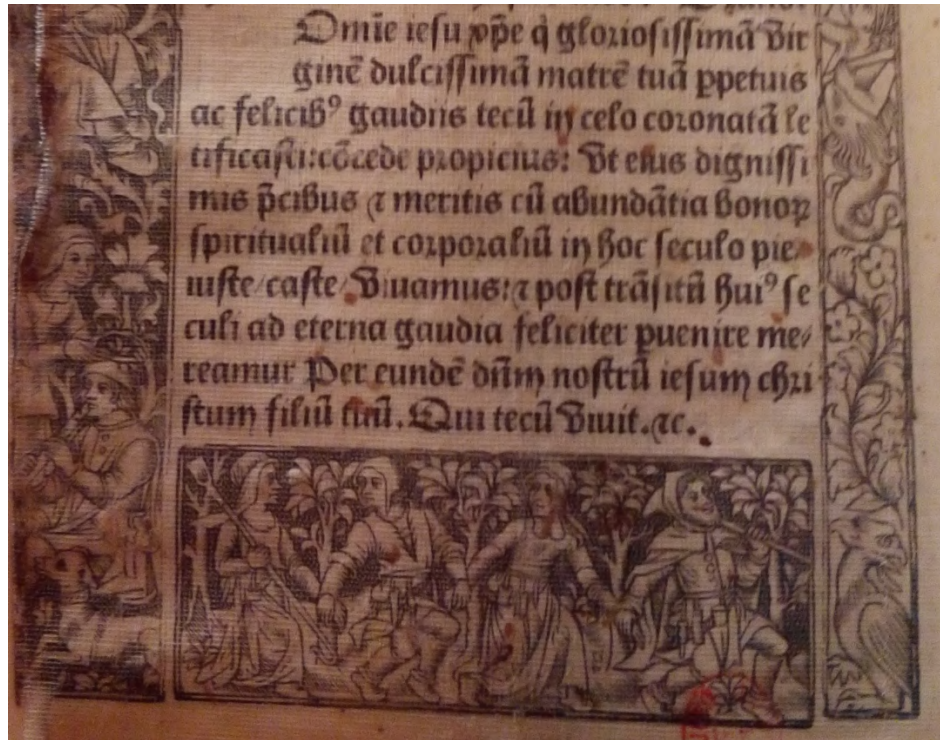 Dmīe iesu xp̄e q̇ gloriosissimā vir
ginē dulcissimā matrē tuā ꝑpetuis
ac felicibꝰ gaudiis tecū in celo coronatā le
tificasti: cōcede propicius: Vt eius dignissi
mis p̄cibus ⁊ meritis cū abundātia bonoꝝ
spiritualiū et corporaliū in hoc seculo pie/
iuste/caste/Viuamus: ⁊ post trāsitū huiꝰ se
culi ad eterna gaudia feliciter ꝑuenire me/
reamur Per eundē dn̄m nostrū iesum chri
stum filiū tuū. Qui tecū viuit. ⁊c.